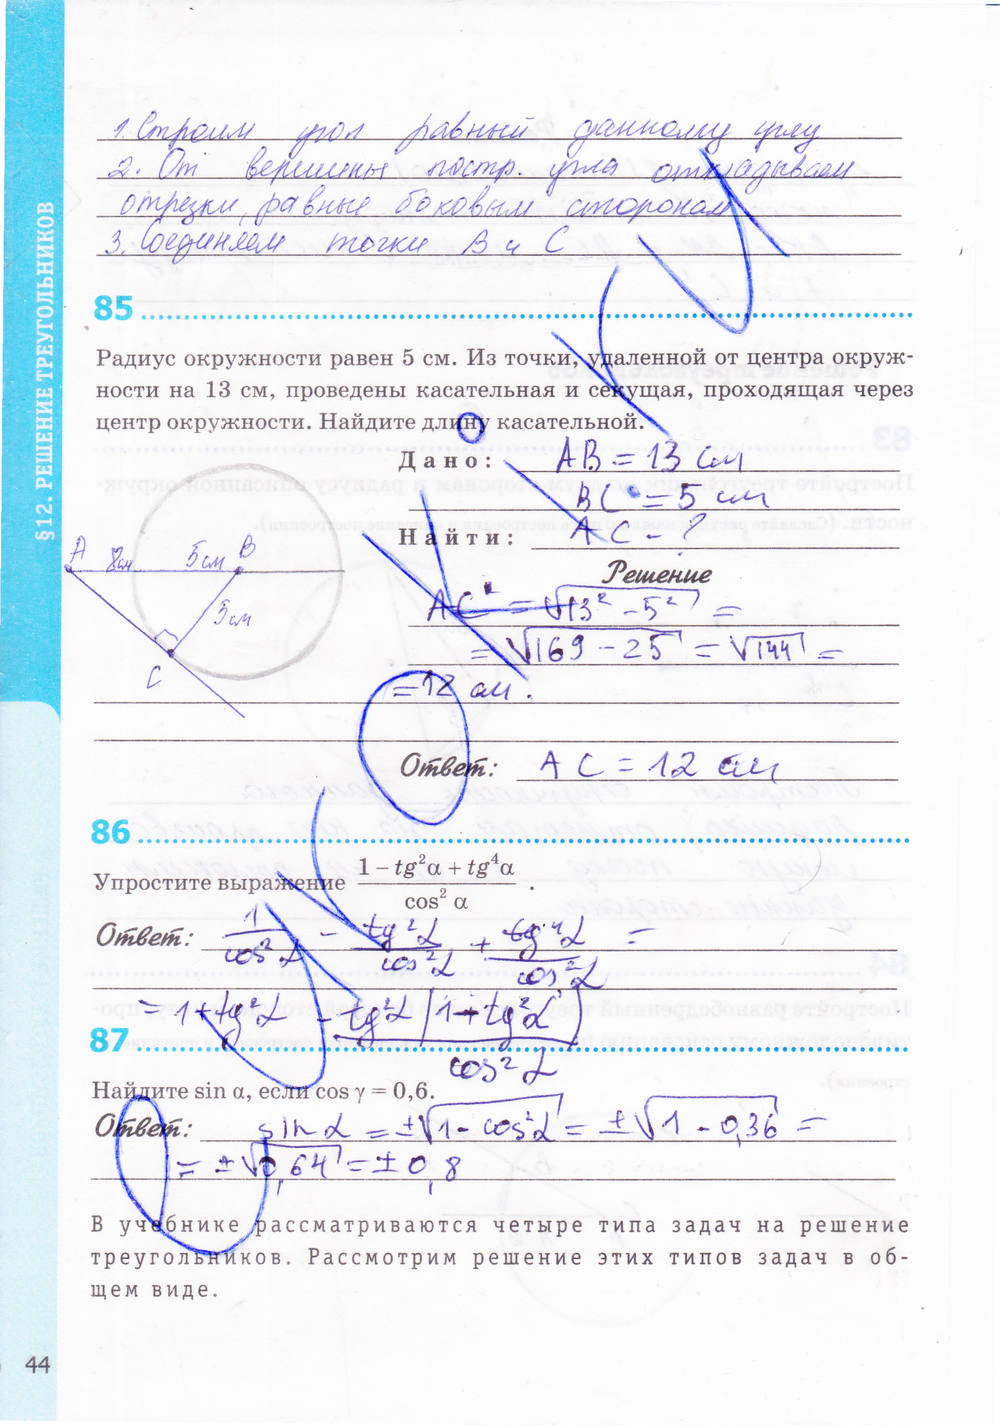 1. Строим угол равный данному углу
2. От вершины постр. угла откладываем
отрезки, равные боковым сторонам
3. Соединяем точки В и С
§12. РЕШЕНИЕ ТРЕУГОЛЬНИКОВ
85
Радиус окружности равен 5 см. Из точки, удаленной от центра окруж-
ности на 13 см, проведены касательная и секущая, проходящая через
центр окружности. Найдите длину касательной.
Дано: AB = 13 см
BC = 5 см
Найти: AC - ?
A 8см 5см B
5см
C
Решение
AC² = √13² - 5² =
= √169 - 25 = √144 =
= 12 см.
Ответ: AC = 12 см
86
Упростите выражение (1 − tg²α + tg⁴α)/(cos² α) .
Ответ: 1/cos²α − tg²α/cos²α + tg⁴α/cos²α =
= 1 + tg²α − tg²α(1 + tg²α)/cos²α
87
Найдите sin α, если cos γ = 0,6.
Ответ: sin α = ±√1 - cos²α = ±√1 - 0,36 =
= ±√0,64 = ±0,8
В учебнике рассматриваются четыре типа задач на решение
треугольников. Рассмотрим решение этих типов задач в об-
щем виде.
44